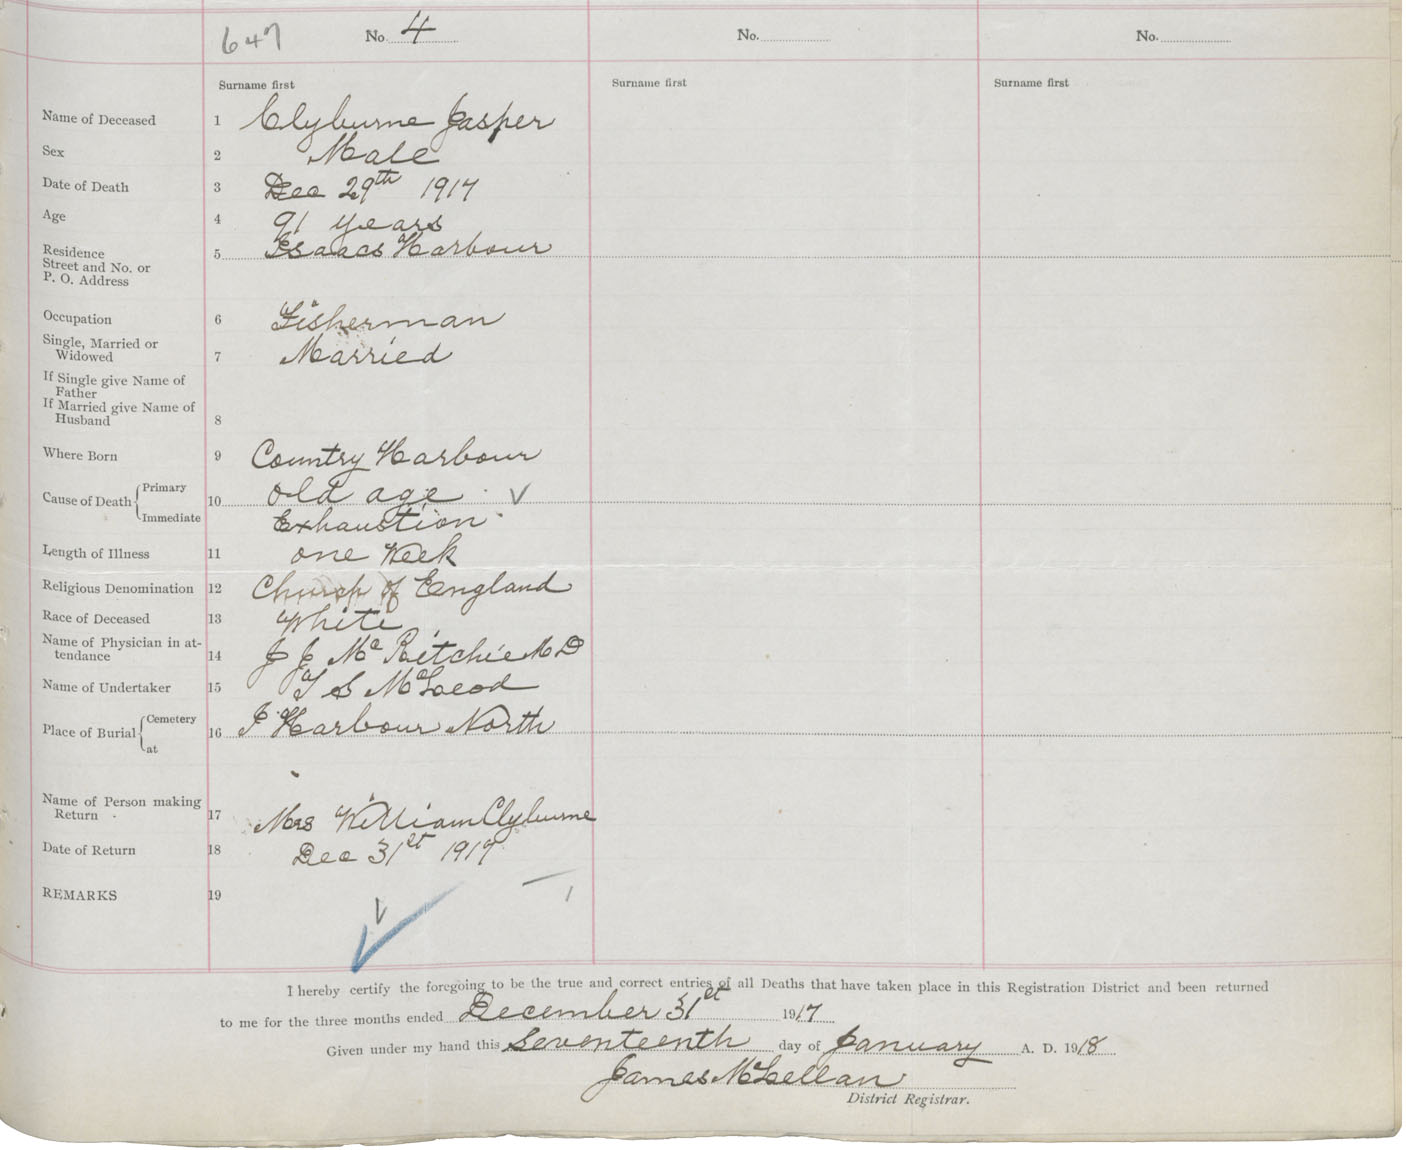 647 No. 4 No. No.
Surname first Surname first Surname first
Name of Deceased 1 Clyburne Jasper
Sex 2 Male
Date of Death 3 Dec 29th 1917
Age 4 91 years
Residence Street and No. or P. O. Address 5 Isaacs Harbour
Occupation 6 Fisherman
Single, Married or Widowed 7 Married
If Single give Name of Father
If Married give Name of Husband 8
Where Born 9 Country Harbour
Cause of Death { Primary 10 Old age
Immediate Exhaustion
Length of Illness 11 one Week
Religious Denomination 12 Church of England
Race of Deceased 13 White
Name of Physician in attendance 14 J J McRitchie M D
Name of Undertaker 15 S McLeod
Place of Burial { Cemetery at 16 I Harbour North
Name of Person making Return 17 Mrs William Clyburne
Date of Return 18 Dec 31st 1917
REMARKS 19
I hereby certify the foregoing to be the true and correct entries of all Deaths that have taken place in this Registration District and been returned
to me for the three months ended December 31st 1917
Given under my hand this Seventeenth day of January A. D. 1918
James McLellan
District Registrar.